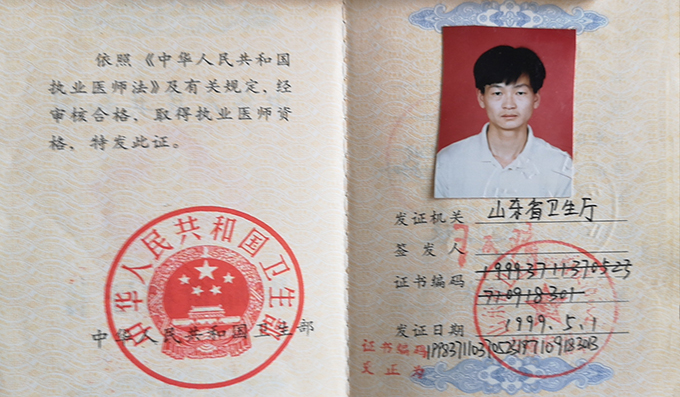 依照《中华人民共和国
执业医师法》及有关规定,经
审核合格,取得执业医师资
格,特发此证。
中华人民共和国卫生部
中华人民共和国卫生部
发证机关 山东省卫生厅
签发人
证书编码 19993711370523
710918301
发证日期 1999.5.1
证书编码 199837110370523197109183013
更正为